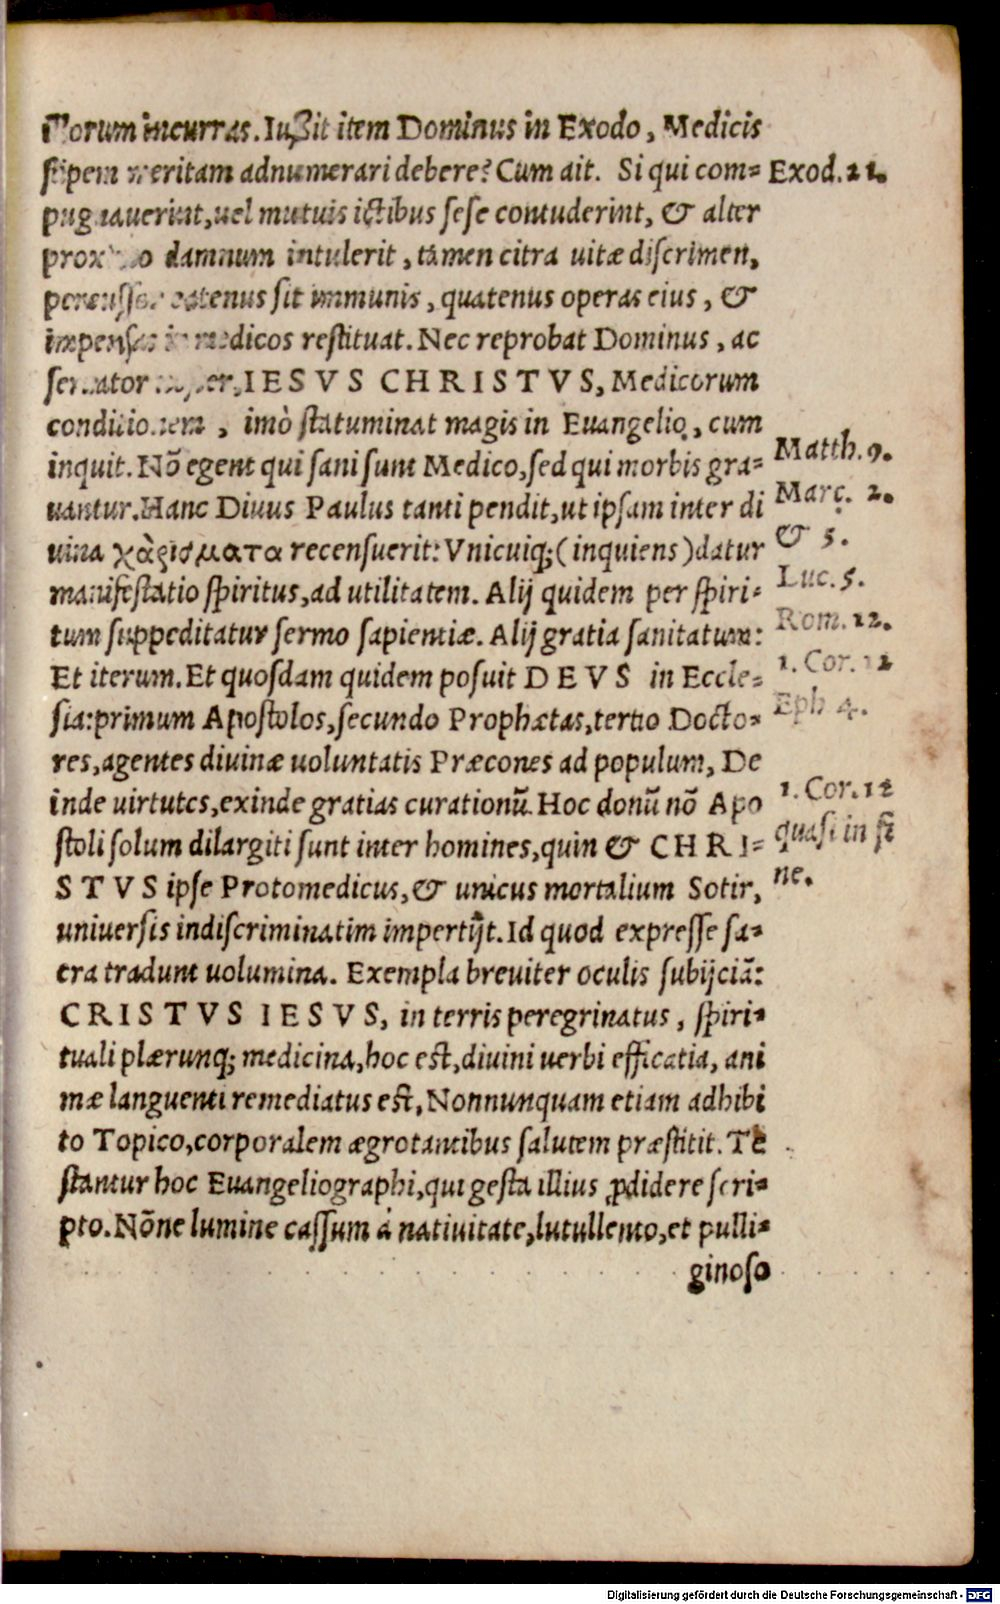 incurras. Iußit item Dominus in Exodo, Medicis
stipem meritam adnumerari debere? Cum ait. Si qui com= Exod. 21.
pugnauerint, uel mutuis ictibus sese contuderint, & alter
damnum intulerit, tamen citra uitæ discrimen,
sit immunis, quatenus operas eius, &
impensas in medicos restituat. Nec reprobat Dominus, ac
seruator IESVS CHRISTVS, Medicorum
conditionem, imò statuminat magis in Euangelio, cum
inquit. Nõ egent qui sani sunt Medico, sed qui morbis gra= Matth. 9.
uantur. Hanc Diuus Paulus tanti pendit, ut ipsam inter di Marc. 2.
uina χάρισματα recensuerit: Vnicuiq; (inquiens) datur & 5.
manifestatio spiritus, ad utilitatem. Alij quidem per spiri= Luc. 5.
tum suppeditatur sermo sapientiæ. Alij gratia sanitatum: Rom. 12.
Et iterum. Et quosdam quidem posuit DEVS in Eccle= 1. Cor. 12
sia: primum Apostolos, secundo Prophætas, tertio Docto= Eph 4.
res, agentes diuinæ uoluntatis Præcones ad populum, De
inde uirtutes, exinde gratias curationũ. Hoc donũ nõ Apo 1. Cor. 12
stoli solum dilargiti sunt inter homines, quin & CHRI= quasi in fi
STVS ipse Protomedicus, & unicus mortalium Sotir, ne.
uniuersis indiscriminatim impertijt. Id quod expresse sa=
cra tradunt uolumina. Exempla breuiter oculis subijciã:
CRISTVS IESVS, in terris peregrinatus, spiri=
tuali plærunq; medicina, hoc est, diuini uerbi efficatia, ani
mæ languenti remediatus est, Nonnunquam etiam adhibi
to Topico, corporalem ægrotantibus salutem præstitit. Te
stantur hoc Euangeliographi, qui gesta illius ꝓdidere scri=
pto. Nõne lumine cassum à natiuitate, lutullento, et pulli=
ginoso
Digitalisierung gefördert durch die Deutsche Forschungsgemeinschaft - DFG